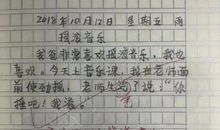 2018年10月12日 星期五 雨
摇滚音乐
我爸非常喜欢摇滚音乐,我也
喜欢。今天上音乐课,我在老师面
前使劲摇,老师生气了说:“你
摇吧!我滚。”